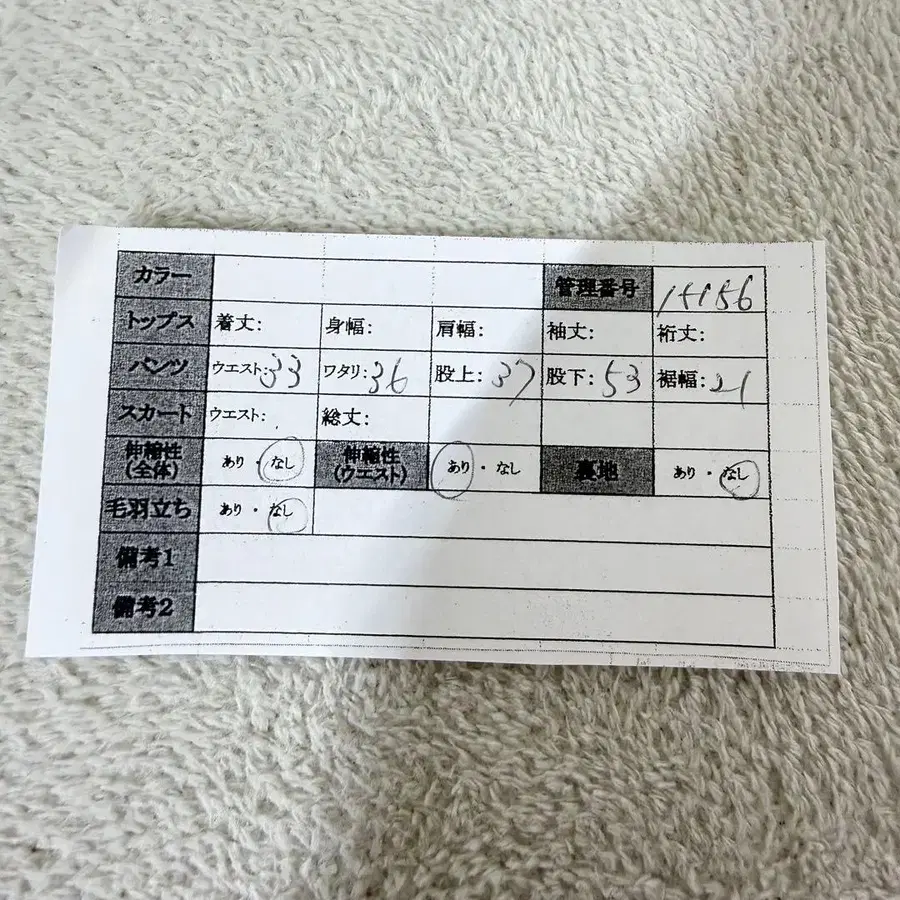 カラー 管理番号 15156
トップス 着丈: 身幅: 肩幅: 袖丈: 裄丈:
パンツ ウエスト:33 ワタリ:36 股上:37 股下:53 裾幅:21
スカート ウエスト: 総丈:
伸縮性(全体) あり・なし 伸縮性(ウエスト) あり・なし 裏地 あり・なし
毛羽立ち あり・なし
備考1
備考2